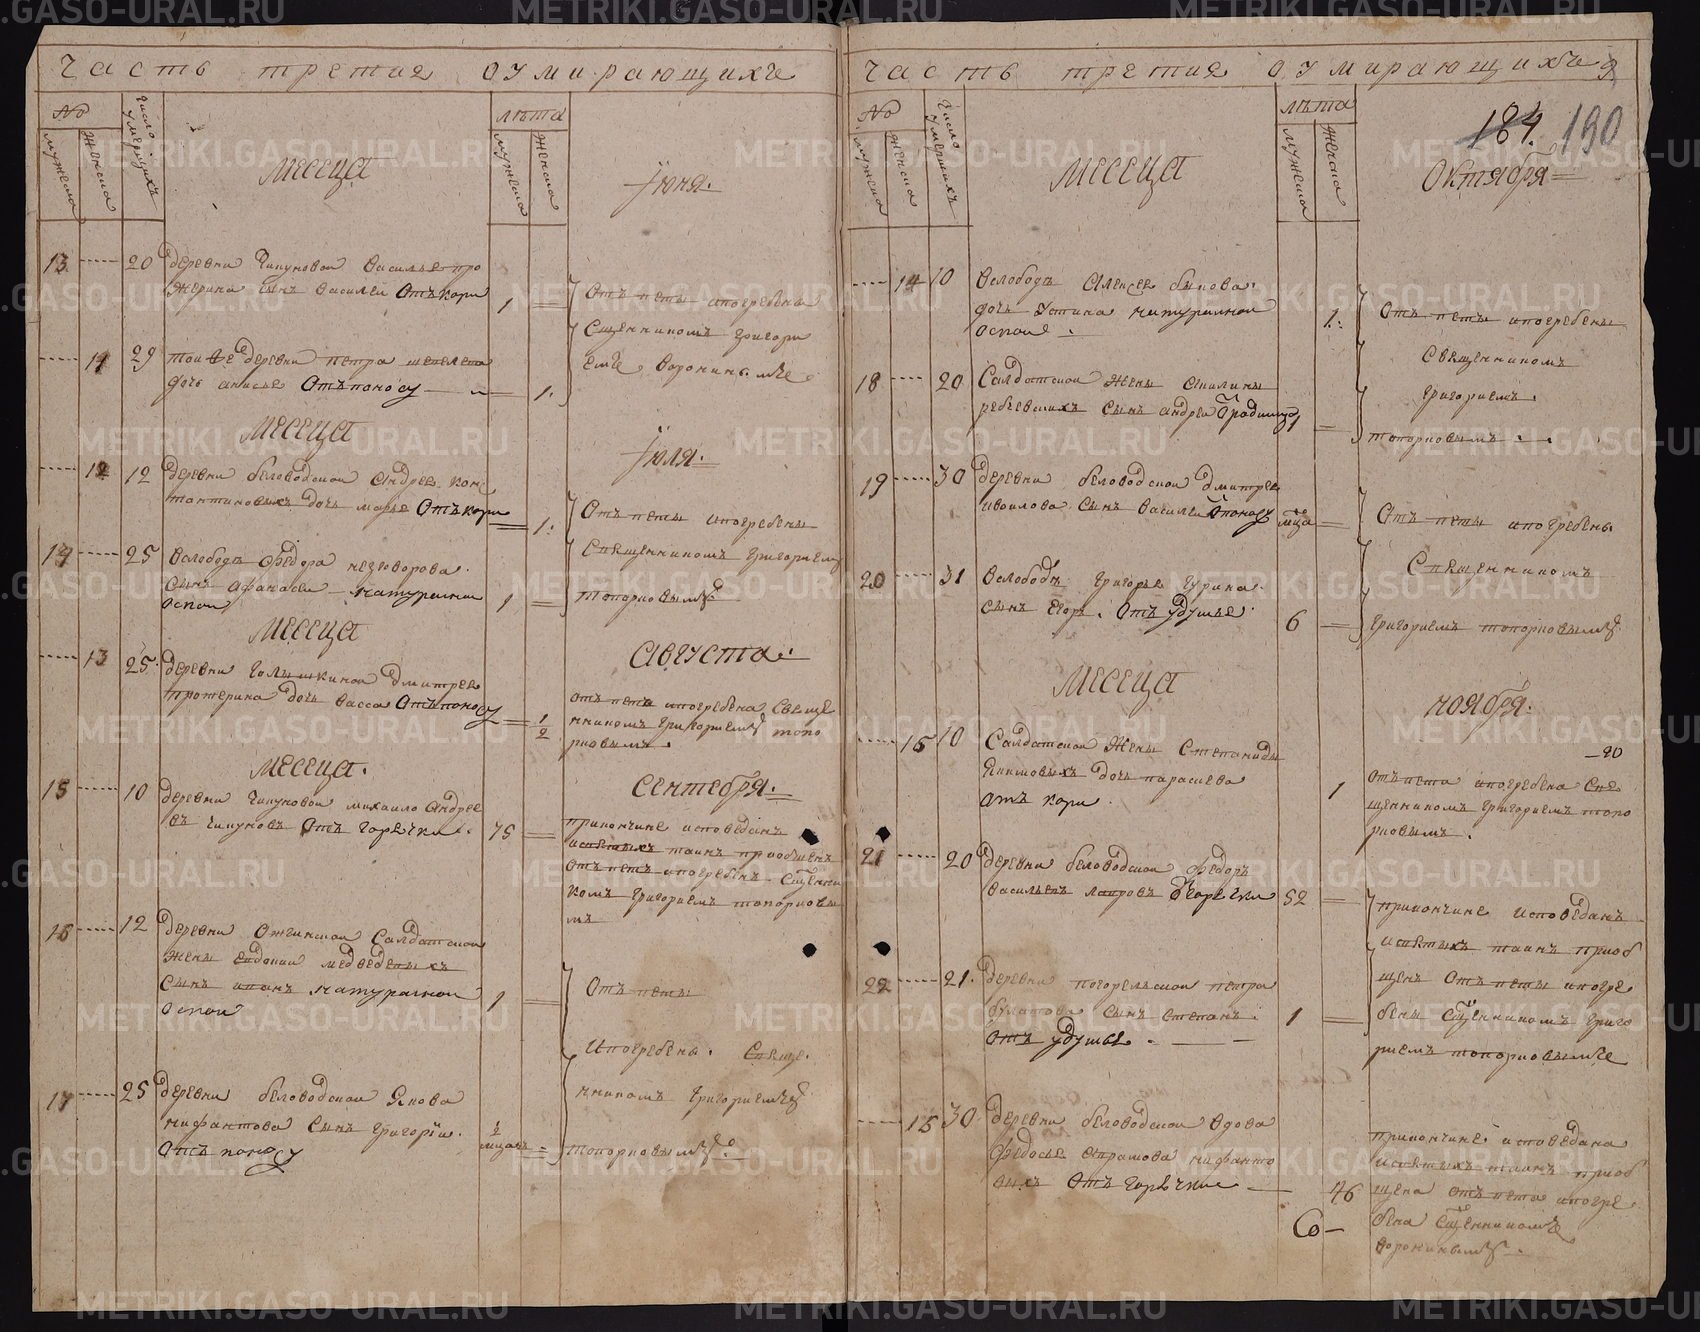 Часть третия оумирающихъ
№
мужеска
женска
число умершихъ
лѣта
мужеска
женска
месеца
Іюня.
13 20 деревни Чипуновои Василья про
жерина сынъ Василеи Отъ кори 1
Отъ петы ипогребены
Сщенникомъ Григори
емъ Воронинымъ
11 29 тои же деревни петра шепелева
дочь анисья Отъ поносу 1.
Месеца
Іюля.
12 12 деревни беловодскои Андрея конс
тантиновыхъ дочь марья Отъ кори 1.
Отъ петы ипогребены
Священникомъ Григориемъ
топорковымъ
14 25 Вслободѣ Федора незговорова
сынъ Афанасеи натуралнои 1
оспои
Месеца
Августа.
13 25 деревни Голышкинои Дмитрея
протерина дочь васса Отъ поносу 1/2
отъ пета ипогребена Свяще
нникомъ Григориемъ топо
рковымъ.
Месеца.
Сентебря.
15 10 деревни Чипуновои михаило Андрее
въ чипуновъ Отъ горячки. 75
приконъчине исповеданъ
исвятыхъ таинъ приобщенъ
Отъ петъ ипогребенъ Сщенни
комъ Григориемъ топорковы
мъ
16 12 деревни Ожгинскои Салдатскои
жены евдокии медведевыхъ
Сынъ иванъ натуралнои 1
оспои
Отъ петы
Ипогребены. Свяще.
нникомъ Григориемъ
топорковымъ.
17 25 деревни беловодскои Якова
нифантова Сынъ Григории. 1/2
Отъ поносу мцавъ
Часть третия оумирающихъ
184. 190
№
мужеска
женска
число умершихъ
лѣта
мужеска
женска
Месеца
Октября
14 10 Вслободѣ Алексея быкова
дочь Устина натуралнои 1.
оспои.
Отъ петы ипогребены
Священникомъ
Григориемъ.
топорковымъ.
18 20 Салдатскои жены Акилины
ребъевскихъ сынъ андреи Ѿ родимцу 1
19 30 деревни беловодскои дмитрея
ивоилова Сынъ Василеи Ѿ поносу мца
Отъ петы ипогребены
Священникомъ
Григориемъ топорковымъ.
20 31 Вслободѣ Григорья Гурина
сынъ Егоръ. Отъ удушья. 6
Месеца
ноября.
20
15 10 Салдатскои жены Степаниды
Якимовыхъ дочь параскева 1
отъ кори.
отъ пета ипогребена Свя
щенникомъ Григориемъ топо
рковымъ.
21 20 деревни беловодскои федоръ
васильевъ лавровъ Ѿ горячки 52
приконъчине исповеданъ
исвятыхъ таинъ приоб
щенъ Отъ петы ипогре
бены Сщенникомъ Григо
риемъ топорковымъ
22 21. деревни погорелскои петра
булатова сынъ Степанъ. 1
Отъ удушья.
15 30 деревни беловодскои вдова
федосья Аврамова нифанто
выхъ Отъ горячки 76
приконъчине исповедана
исвятыхъ таинъ приоб
щена отъ пета ипогре
бена Сщенникомъ
воронинымъ.
Со-